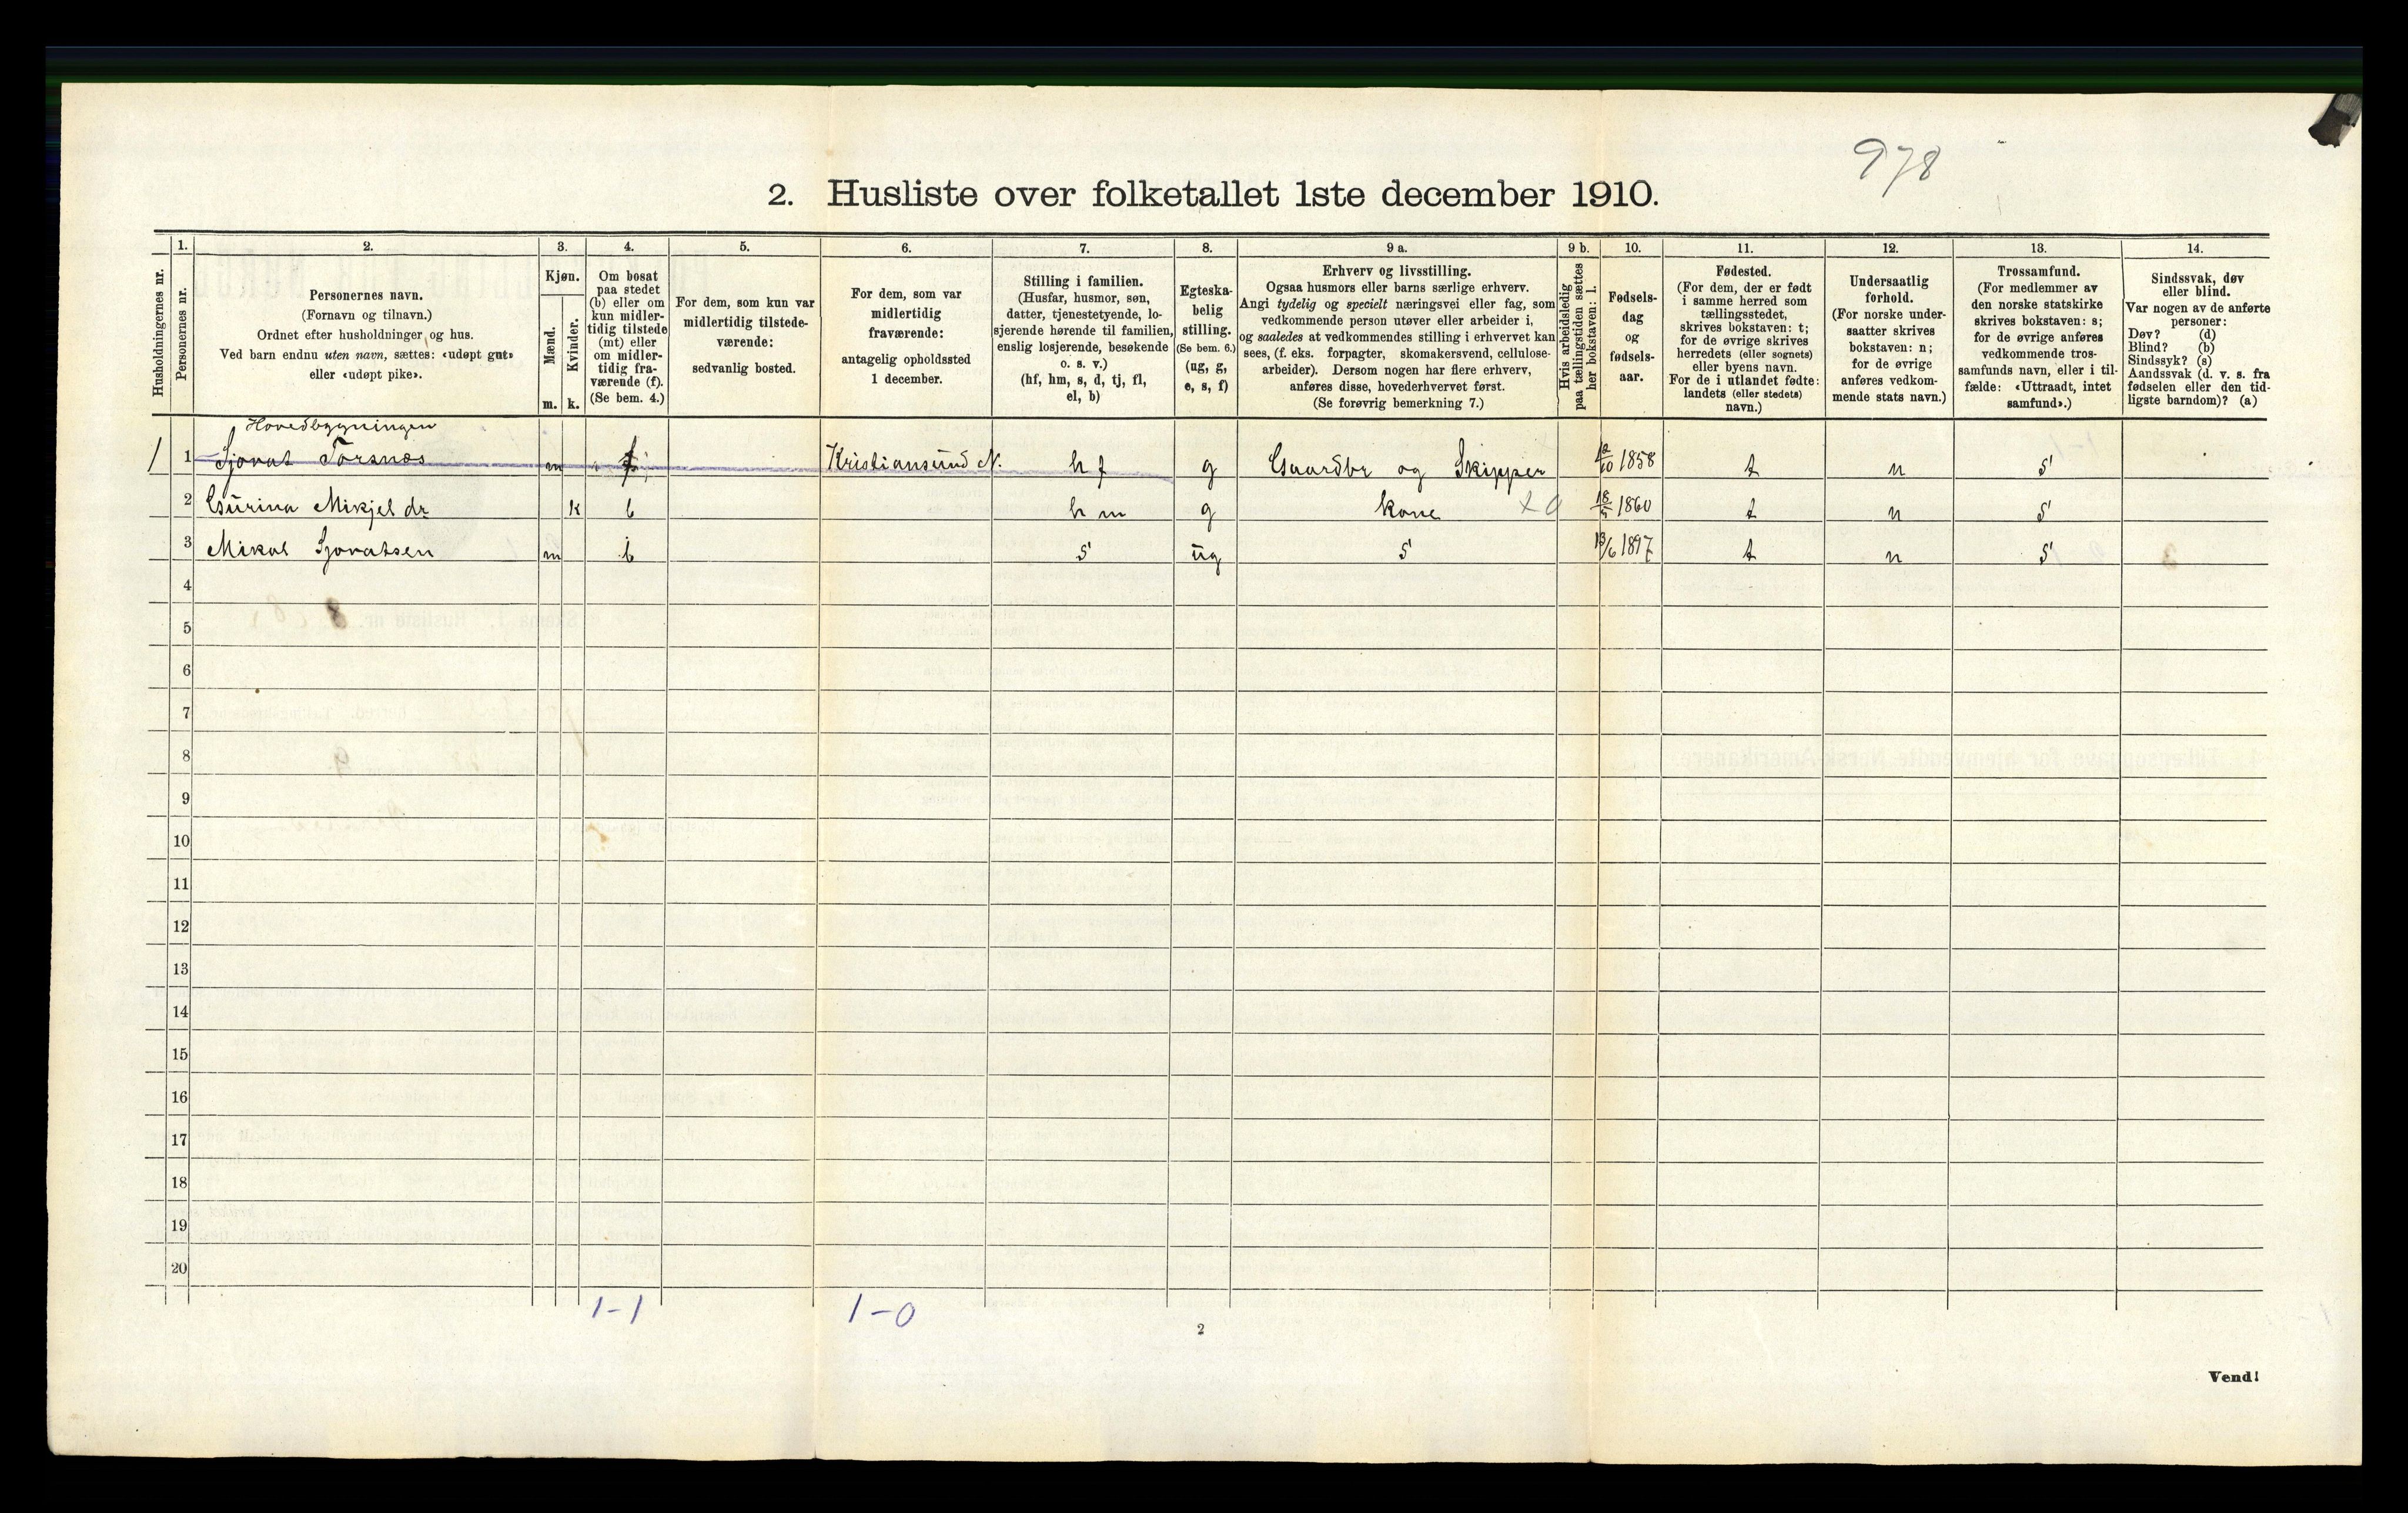 978
2. Husliste over folketallet 1ste december 1910.
1. 2. 3. 4. 5. 6. 7. 8. 9 a. 9 b. 10. 11. 12. 13. 14.
Husholdningernes nr.
Personernes nr.
Personernes navn.
(Fornavn og tilnavn.)
Ordnet efter husholdninger og hus.
Ved barn endnu uten navn, sættes: «udøpt gut»
eller «udøpt pike».
Kjøn.
Mænd.
Kvinder.
m. k.
Om bosat
paa stedet
(b) eller om
kun midler-
tidig tilstede
(mt) eller
om midler-
tidig fra-
værende (f).
(Se bem. 4.)
For dem, som kun var
midlertidig tilstede-
værende:
sedvanlig bosted.
For dem, som var
midlertidig
fraværende:
antagelig opholdssted
1 december.
Stilling i familien.
(Husfar, husmor, søn,
datter, tjenestetyende, lo-
sjerende hørende til familien,
enslig losjerende, besøkende
o. s. v.)
(hf, hm, s, d, tj, fl,
el, b)
Egteska-
belig
stilling.
(Se bem. 6.)
(ug, g,
e, s, f)
Erhverv og livsstilling.
Ogsaa husmors eller barns særlige erhverv.
Angi tydelig og specielt næringsvei eller fag, som
vedkommende person utøver eller arbeider i,
og saaledes at vedkommendes stilling i erhvervet kan
sees, (f. eks. forpagter, skomakersvend, cellulose-
arbeider). Dersom nogen har flere erhverv,
anføres disse, hovederhvervet først.
(Se forøvrig bemerkning 7.)
Hvis arbeidsledig
paa tællingstiden sættes
her bokstaven: l.
Fødsels-
dag
og
fødsels-
aar.
Fødested.
(For dem, der er født
i samme herred som
tællingsstedet,
skrives bokstaven: t;
for de øvrige skrives
herredets (eller sognets)
eller byens navn.
For de i utlandet fødte:
landets (eller stedets)
navn.)
Undersaatlig
forhold.
(For norske under-
saatter skrives
bokstaven: n;
for de øvrige
anføres vedkom-
mende stats navn.)
Trossamfund.
(For medlemmer av
den norske statskirke
skrives bokstaven: s;
for de øvrige anføres
vedkommende tros-
samfunds navn, eller i til-
fælde: «Uttraadt, intet
samfund».)
Sindssvak, døv
eller blind.
Var nogen av de anførte
personer:
Døv? (d)
Blind? (b)
Sindssyk? (s)
Aandssvak (d. v. s. fra
fødselen eller den tid-
ligste barndom)? (a)
Hovedbygningen
1 1 Sjovat Torsnæs m f Kristiansund N. hf g Gaardbr og Skipper 12/10 1858 t n s
2 Gurina Mikjel dr k b hm g kone 1860 t n s
3 Mikal Sjovatsen m b s ug s 13/6 1897 t n s
4
5
6
7
8
9
10
11
12
13
14
15
16
17
18
19
20
1-1 1-0
2
Vend!